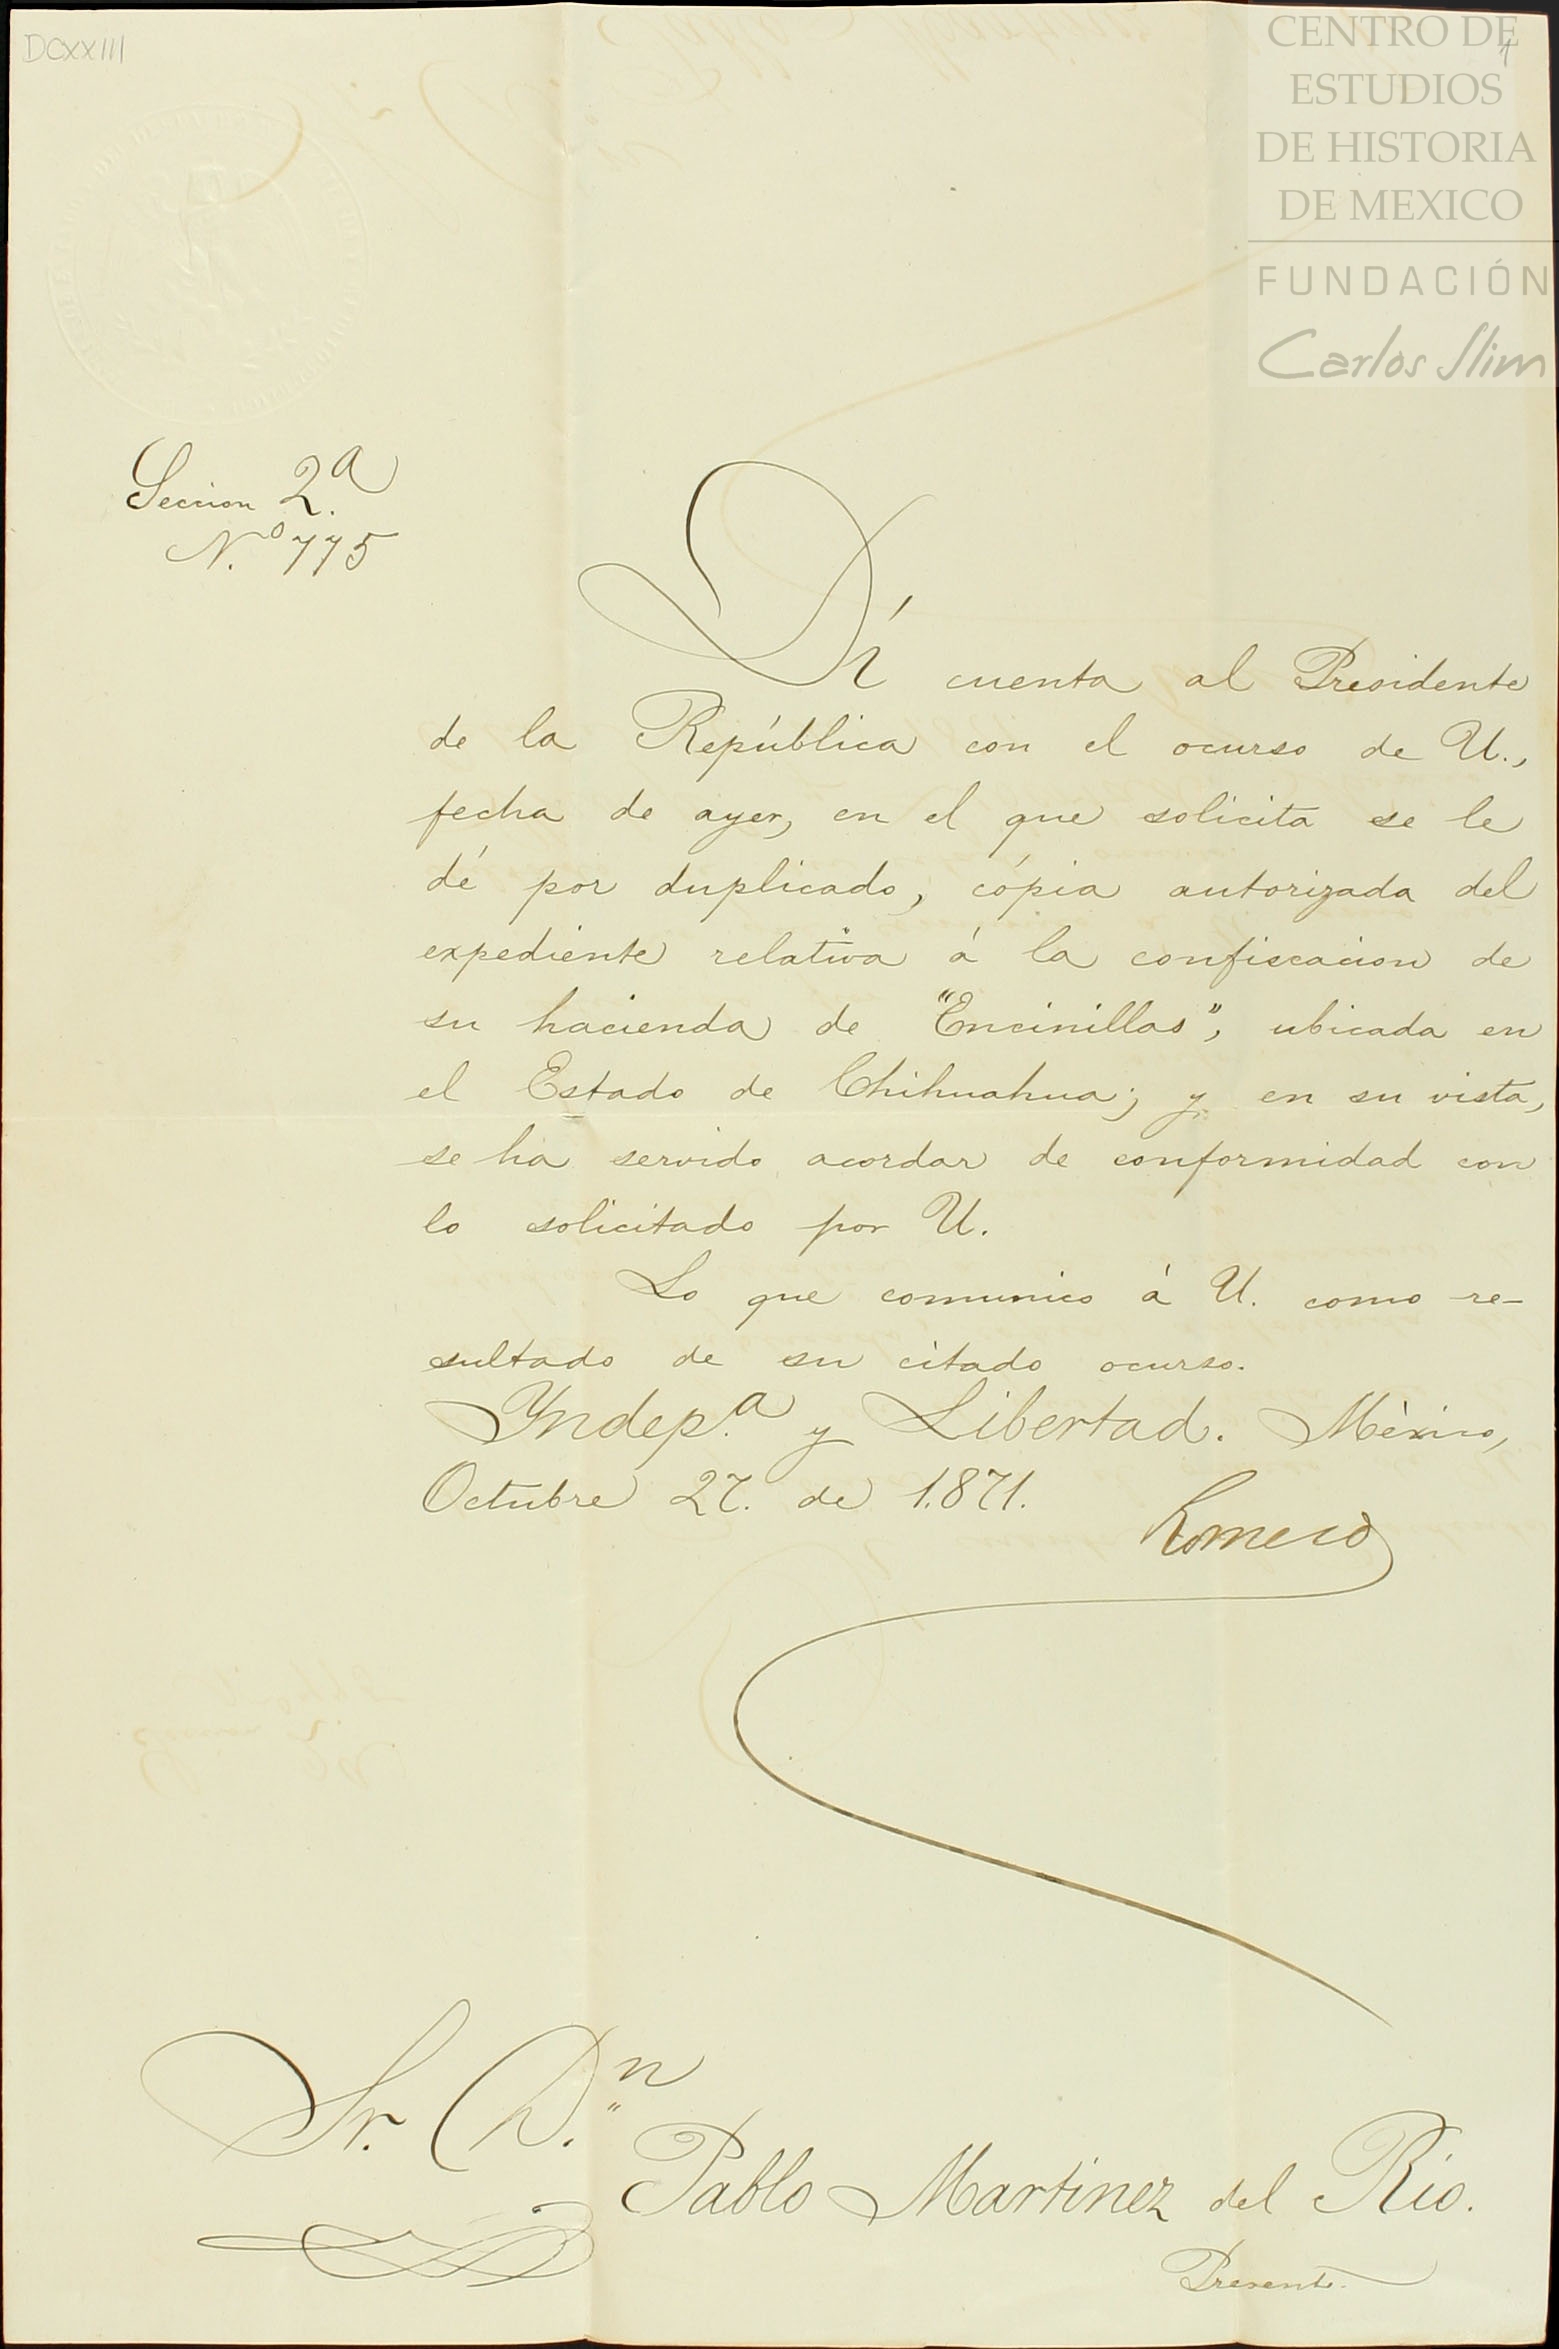 DCXXIII
1
CENTRO DE
ESTUDIOS
DE HISTORIA
DE MEXICO
FUNDACIÓN
Carlos Slim
Seccion 2.a
N.o 775
Dí cuenta al Presidente
de la República con el ocurso de U.,
fecha de ayer, en el que solicita se le
dé por duplicado, cópia autorizada del
expediente relativa á la confiscacion de
su hacienda de "Encinillas", ubicada en
el Estado de Chihuahua; y en su vista,
se ha servido acordar de conformidad con
lo solicitado por U.
Lo que comunico á U. como re-
sultado de su citado ocurso.
Yndep.a y Libertad. México,
Octubre 27. de 1.871.
Romero
Sr. D.n
Pablo Martinez del Rio.
Presente.